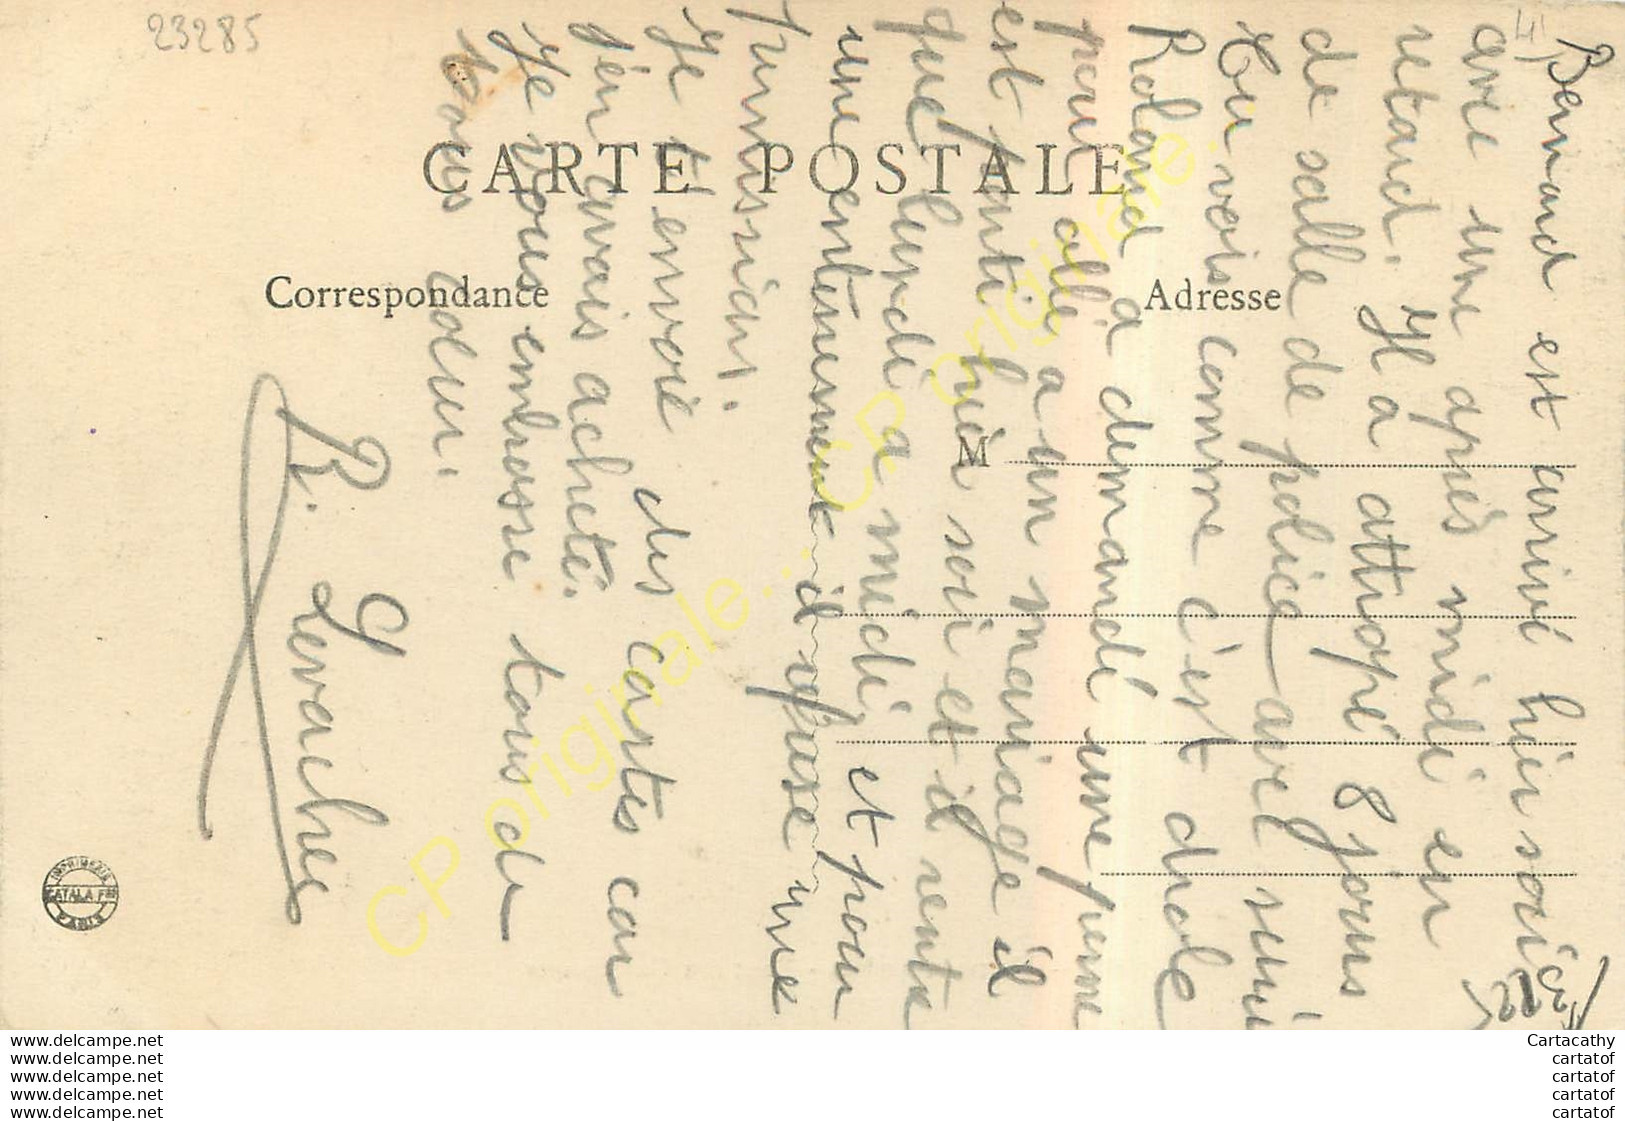 23285
4)
Bernard est arrivé hier soir
avec une après midi en
retard. Il a attrapé 8 jours
de salle de police avec sursi
Tu vois comme c'est drole
Roland a demandé une perme
pour allé a un mariage il
est parti hier soir et il rentre
que lundi a midi, et pour
une enterrement il refuse une
permission.
Je t'envoie des cartes car
j'en avais acheté.
Je vous embrasse tous de
tous coeur.
R. Levacher
CARTE POSTALE
Correspondance
Adresse
M
IMPRIMERIE
CATALA Fres
PARIS
CP originale... CP originale.
www.delcampe.net
www.delcampe.net
www.delcampe.net
www.delcampe.net
www.delcampe.net
Cartacathy
cartatof
cartatof
cartatof
cartatof